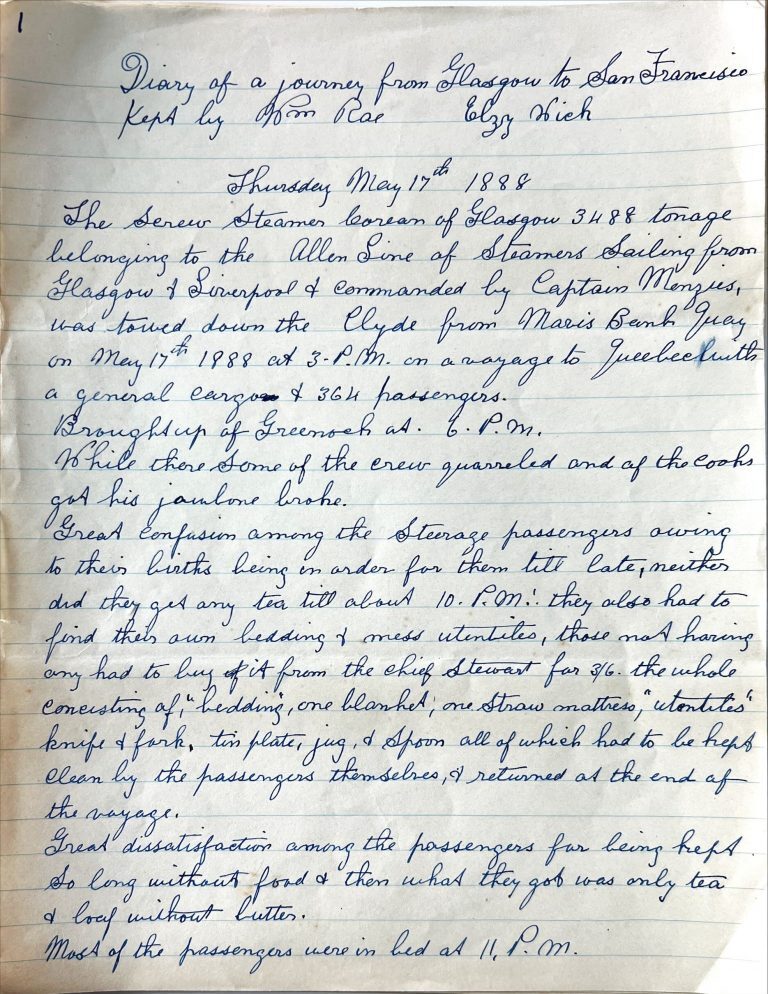 1
Diary of a journey from Glasgow to San Francisco
Kept by Wm Rae Elzy Wick
Thursday May 17th 1888
The Screw Steamer Corean of Glasgow 3488 tonage
belonging to the Allen Line of Steamers Sailing from
Glasgow & Liverpool & commanded by Captain Menzies,
was towed down the Clyde from Maris Bank Quay
on May 17th 1888 at 3-P.M. on a voyage to Queebeck with
a general cargo & 364 passengers.
Brought up of Greenock at. 6. P.M.
While there some of the crew quarreled and of the cooks
got his jawbone broke.
Great confusion among the Steerage passengers owing
to their births being in order for them till late, neither
did they get any tea till about 10. P.M. they also had to
find their own bedding & mess utentiles, those not having
any had to buy it from the chief Stewart for 3/6. the whole
concisting of, "bedding", one blanket, one straw mattress, "utentiles"
knife & fork, tin plate, jug, & spoon all of which had to be kept
clean by the passengers themselves, & returned at the end of
the voyage.
Great dissatisfaction among the passengers for being kept
So long without food & then what they got was only tea
& loaf without butter.
Most of the passengers were in bed at 11, P.M.